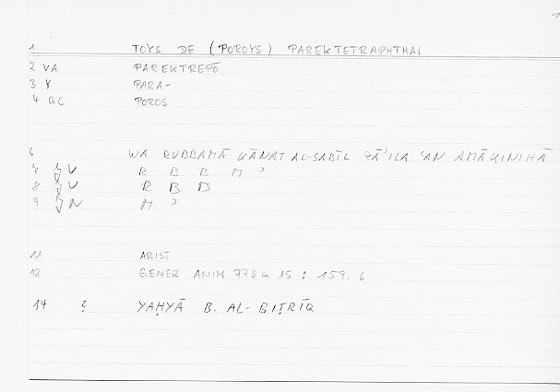 1 TOYS DE (POROYS) PAREKTETRAPHTHAI
2 VA PAREKTREPŌ
3 X PARA-
4 GC POROS
6 WA RUBBAMĀ KĀNAT AL-SABĪL ZĀʾILA ʿAN AMĀKINIHĀ
7 V R B B M ʾ
8 V R B B
9 N M ʾ
11 ARIST
12 GENER ANIM 776 a 15 : 159. 6
14 ? YAḤYĀ B. AL-BIṬRĪQ